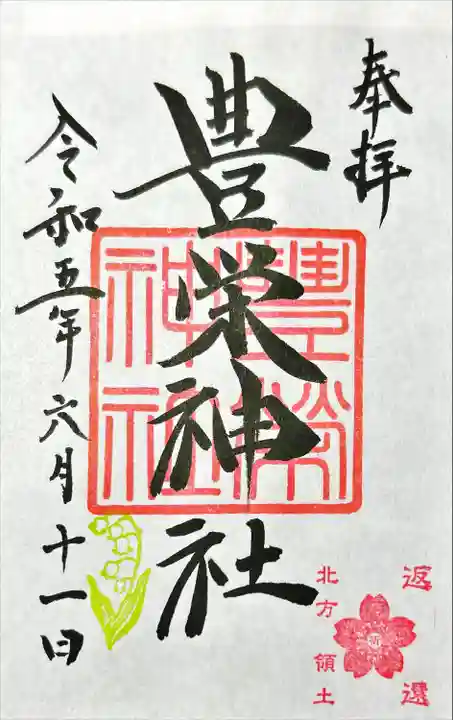 奉拝
豊栄神社
豊榮神社
令和五年六月十一日
返還
北方領土